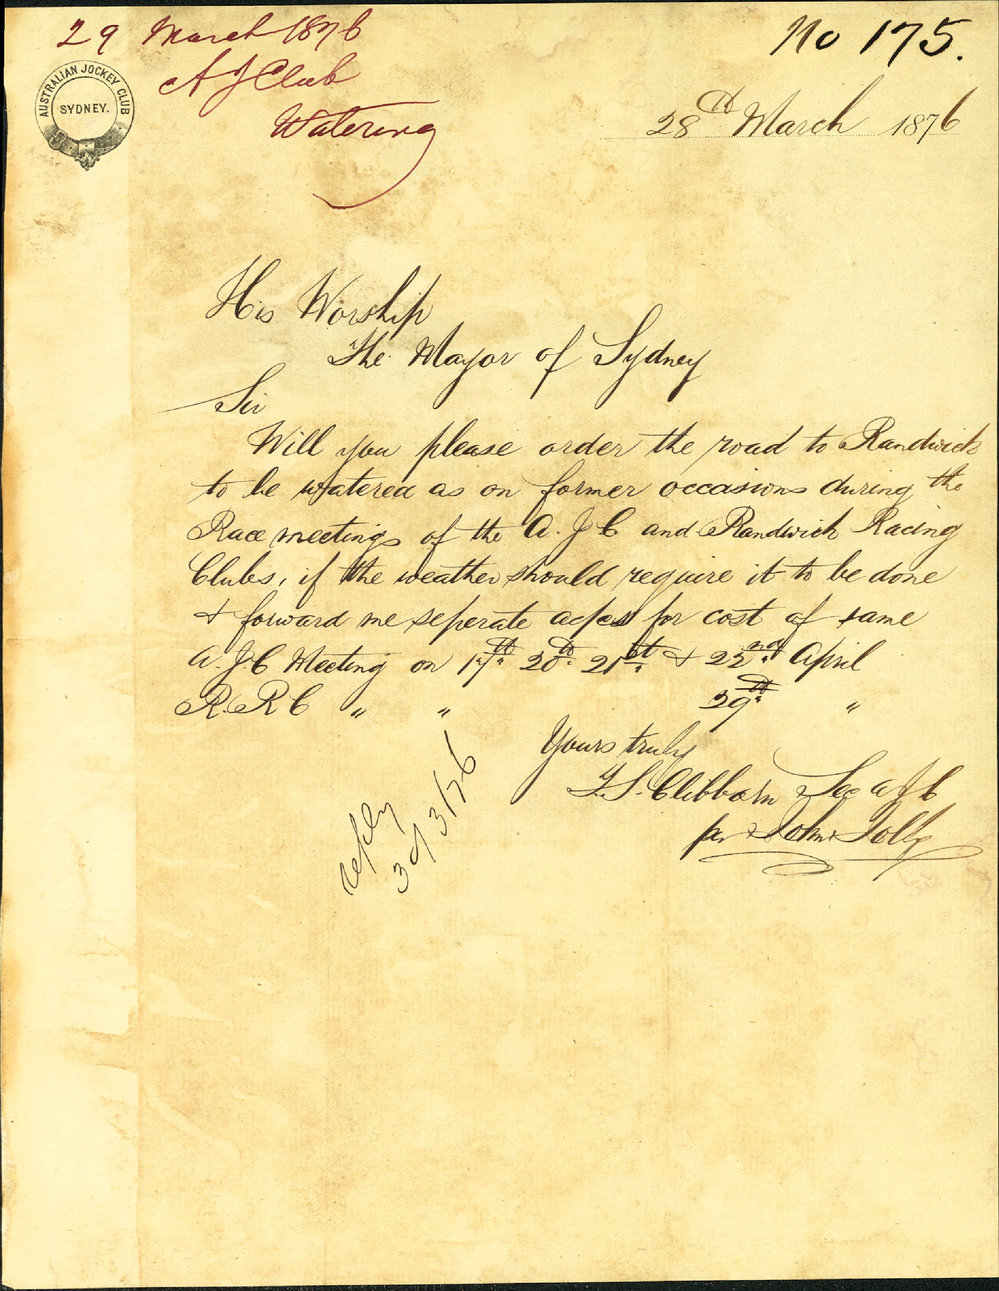 29 March 1876
A J Club
Watering
No 175.
AUSTRALIAN JOCKEY CLUB
SYDNEY.
28th March 1876
His Worship
The Mayor of Sydney
Sir
Will you please order the road to Randwick
to be watered as on former occasions during the
Race meetings of the A. J C and Randwick Racing
Clubs, if the weather should require it to be done
& forward me seperate for cost of same
A. J C Meeting on 17th 20th 21st & 22nd April
R. R C " " 29th "
Yours truly
T. S. Clibborn Sec A J C
per John Jolly
reply
30/3/76